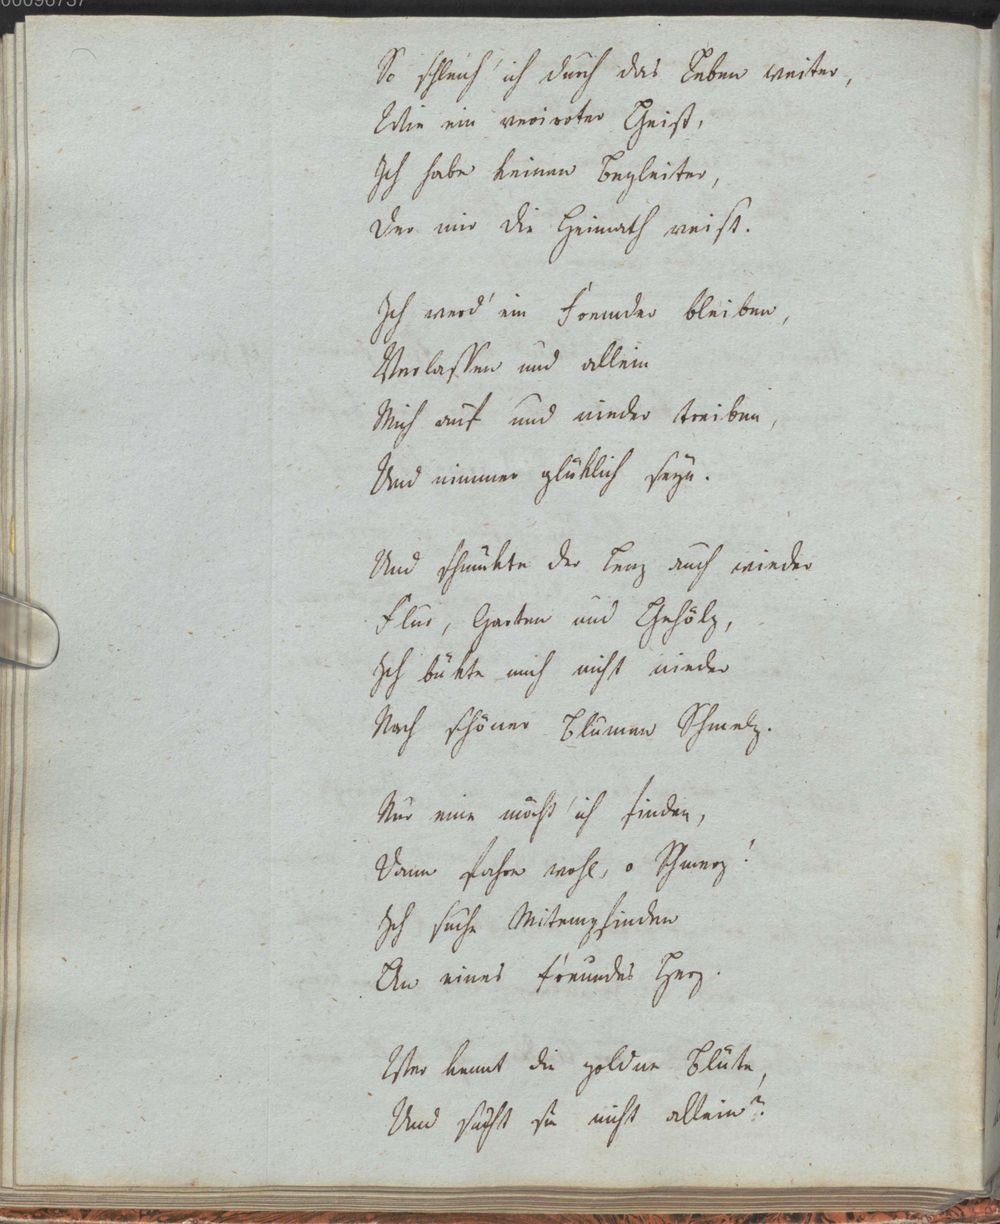 00096737
So schleich' ich durch das Leben weiter,
Wie ein verirrter Geist,
Ich habe keinen Begleiter,
Der mir die Heimath weist.
Ich werd' ein Fremder bleiben,
Verlassen und allein
Mich auf und nieder treiben,
Und nimmer glüklich seyn.
Und schmükte der Lenz auch wieder
Flur, Garten und Gehölz,
Ich bükte mich nicht nieder
Nach schöner Blumen Schmelz.
Nur eine möcht' ich finden,
Dann fahre wohl, o Schmerz!
Ich suche Mitempfinden
An eines Freundes Herz.
Wer kennt die goldne Blüte,
Und sucht sie nicht allein?